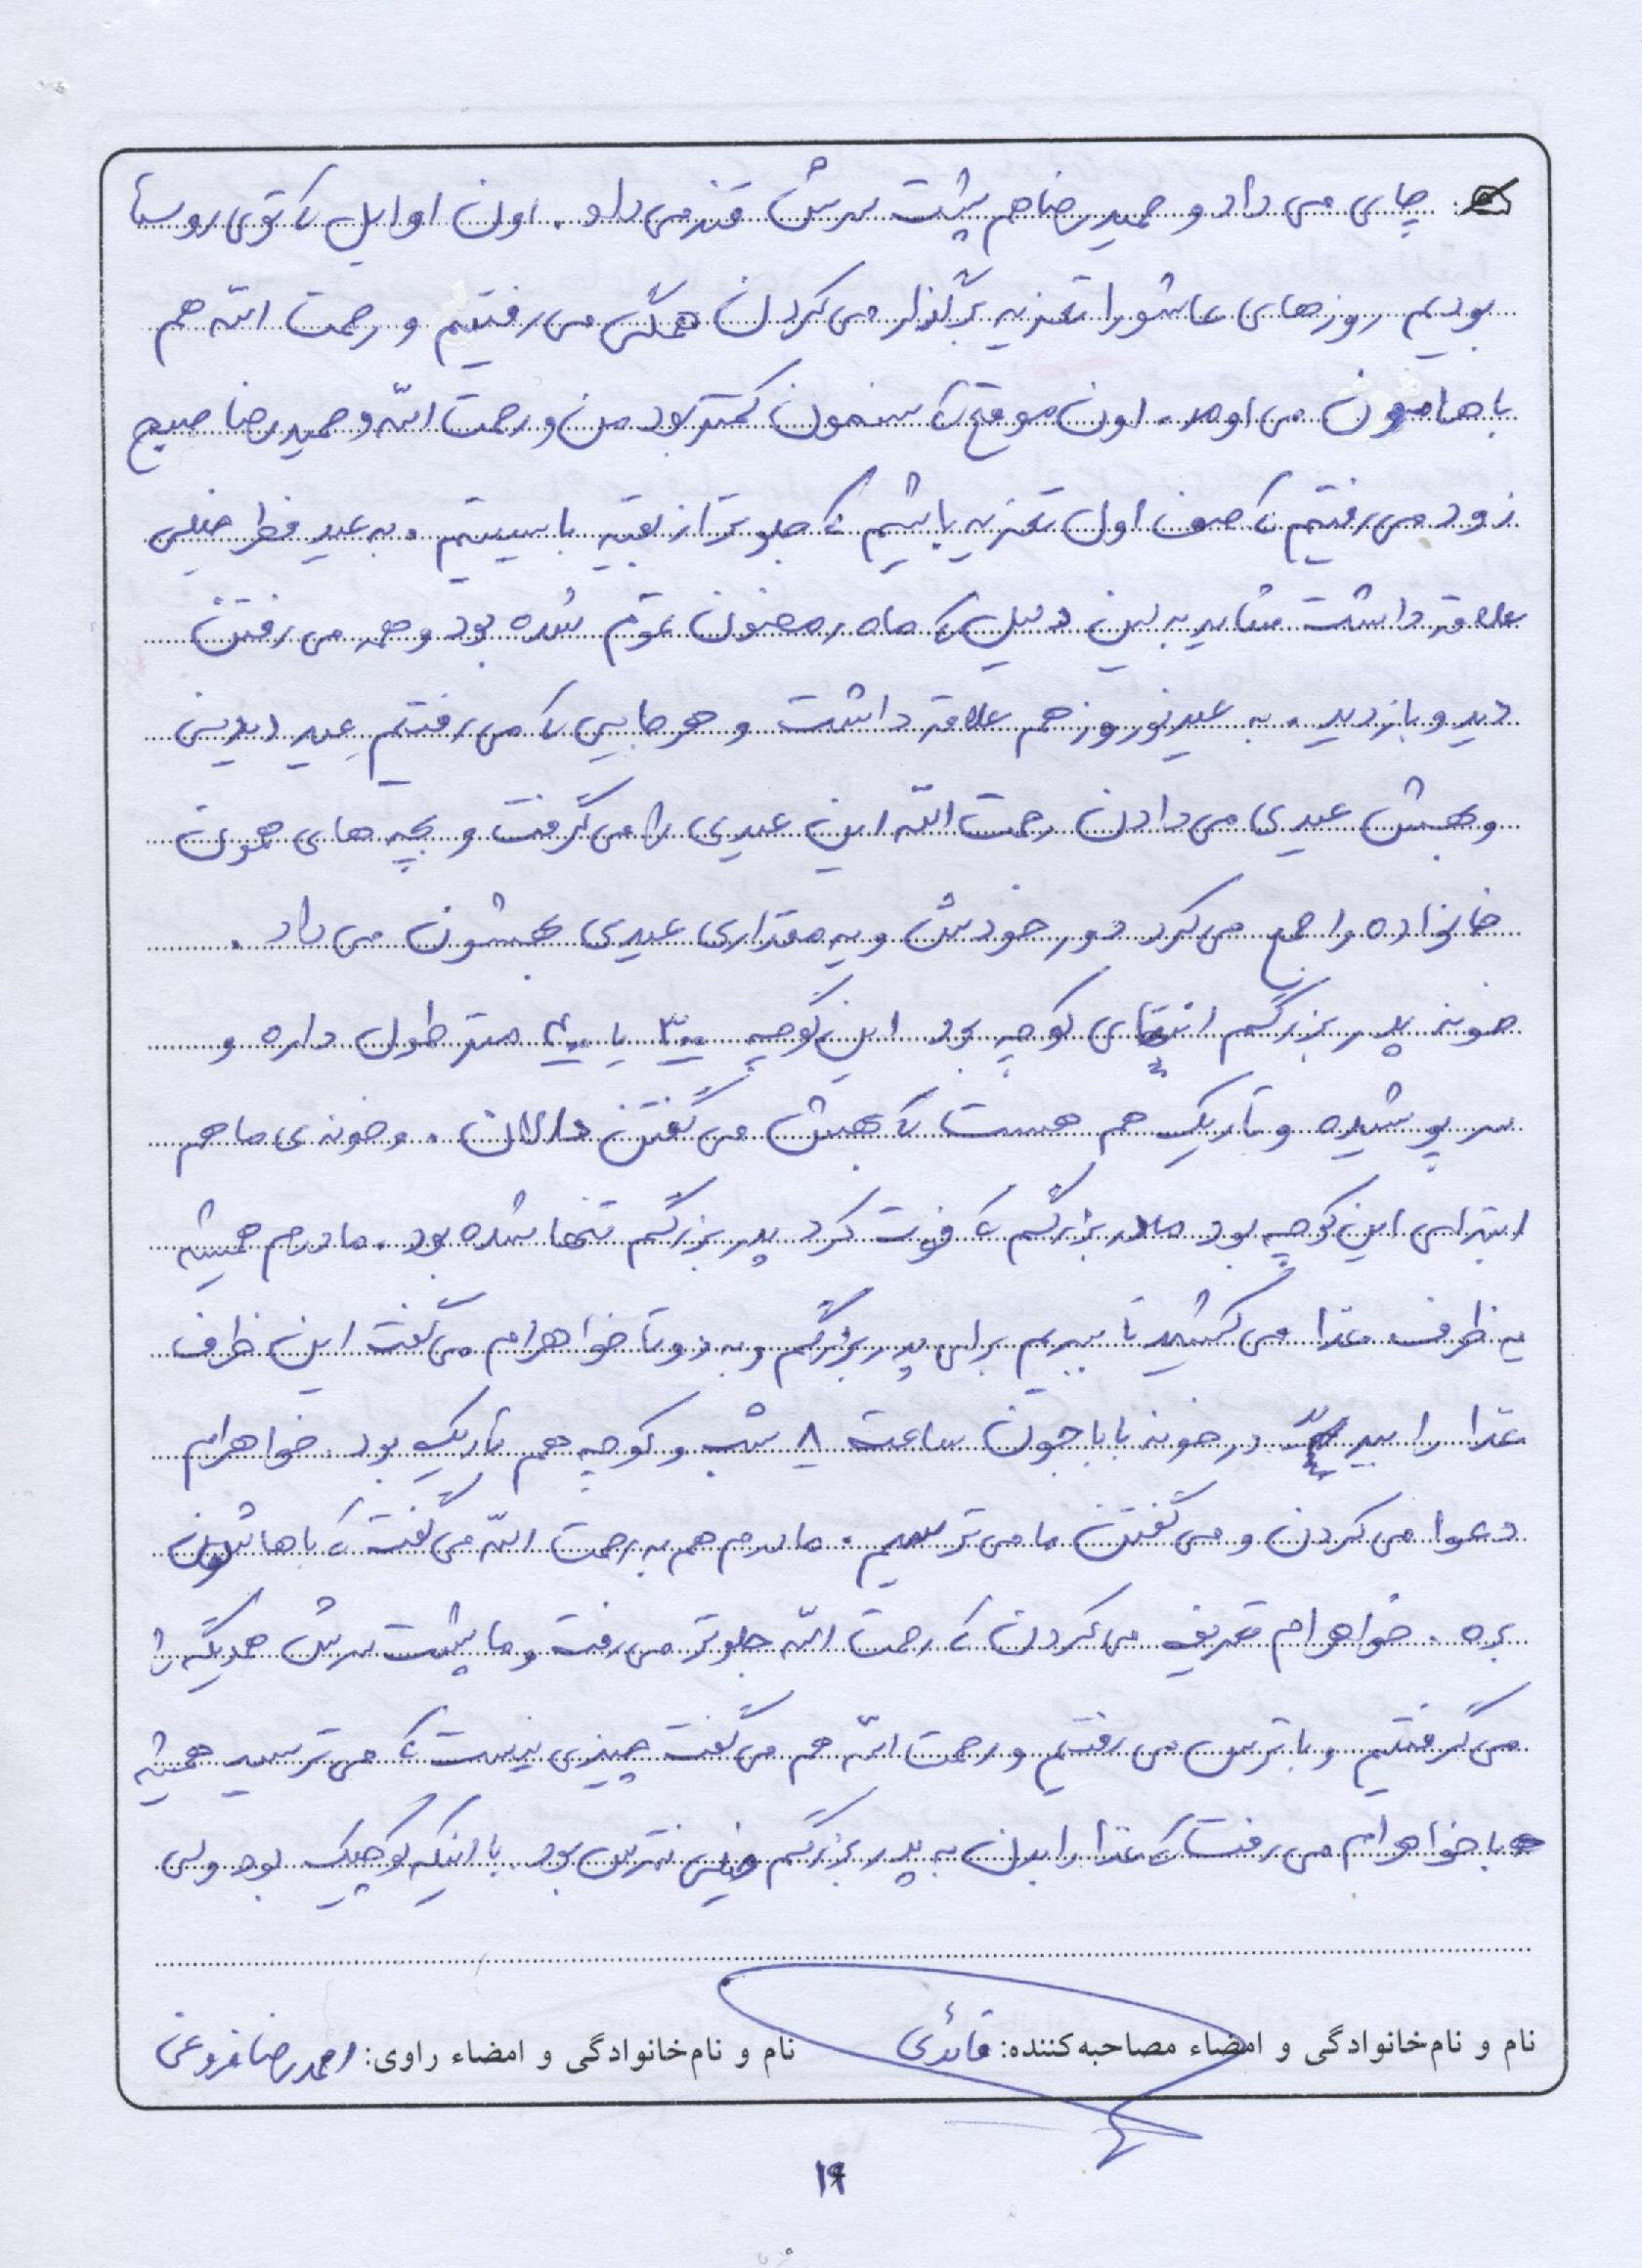 چای می داد و حمیدرضا هم پشت سرش قند می داد. اون اوایل که توی روستا
بودیم روزهای عاشورا تعزیه برگذار می کردن همگی می رفتیم و رحمت الله هم
باهامون می اومد. اون موقع که سنمون کمتر بود من و رحمت الله و حمیدرضا صبح
زود می رفتیم که صف اول تعزیه باشیم که جلوتر از بقیه باسیتیم. به عید فطر خیلی
علاقه داشت شاید به این دلیل که ماه رمضون تموم شده بود و همه می رفتن
دید و بازدید. به عید نوروز هم علاقه داشت و هرجایی که می رفتیم عید دیدنی
و بهش عیدی می دادن رحمت الله این عیدی را می گرفت و بچه های همون
خانواده را جمع می کرد دور خودش و یه مقداری عیدی بهشون می داد.
خونه پدربزرگم انتهای کوچه بود این کوچه ۳۰ یا ۴۰ متر طول داره و
سرپوشیده و تاریک هم هست که بهش می گفتن دالان. و خونه ی ما هم
ابتدای این کوچه بود مادربزرگم که فوت کرد پدربزرگم تنها شده بود. مادرم همیشه
یه ظرف غذا می کشید تا ببریم برای پدربزرگم و به دوتا خواهرام می گفت این ظرف
غذا را ببرید در خونه باباجون ساعت ۸ شب و کوچه هم تاریک بود. خواهرام
دعوا می کردن و می گفتن ما می ترسیم. مادرم هم به رحمت الله می گفت که باهاشون
بره. خواهرام تعریف می کردن که رحمت الله جلوتر می رفت و ما پشت سرش همدیگه را
می گرفتیم و با ترس می رفتیم و رحمت الله هم می گفت چیزی نیست که می ترسید همیشه
با خواهرام می رفت که غذا را بدن به پدربزرگم خیلی نترس بود. با اینکه کوچیک بود ولی
نام و نام‌خانوادگی و امضاء مصاحبه‌کننده: قائدی نام و نام‌خانوادگی و امضاء راوی: احمدرضا فروغی
۱۹